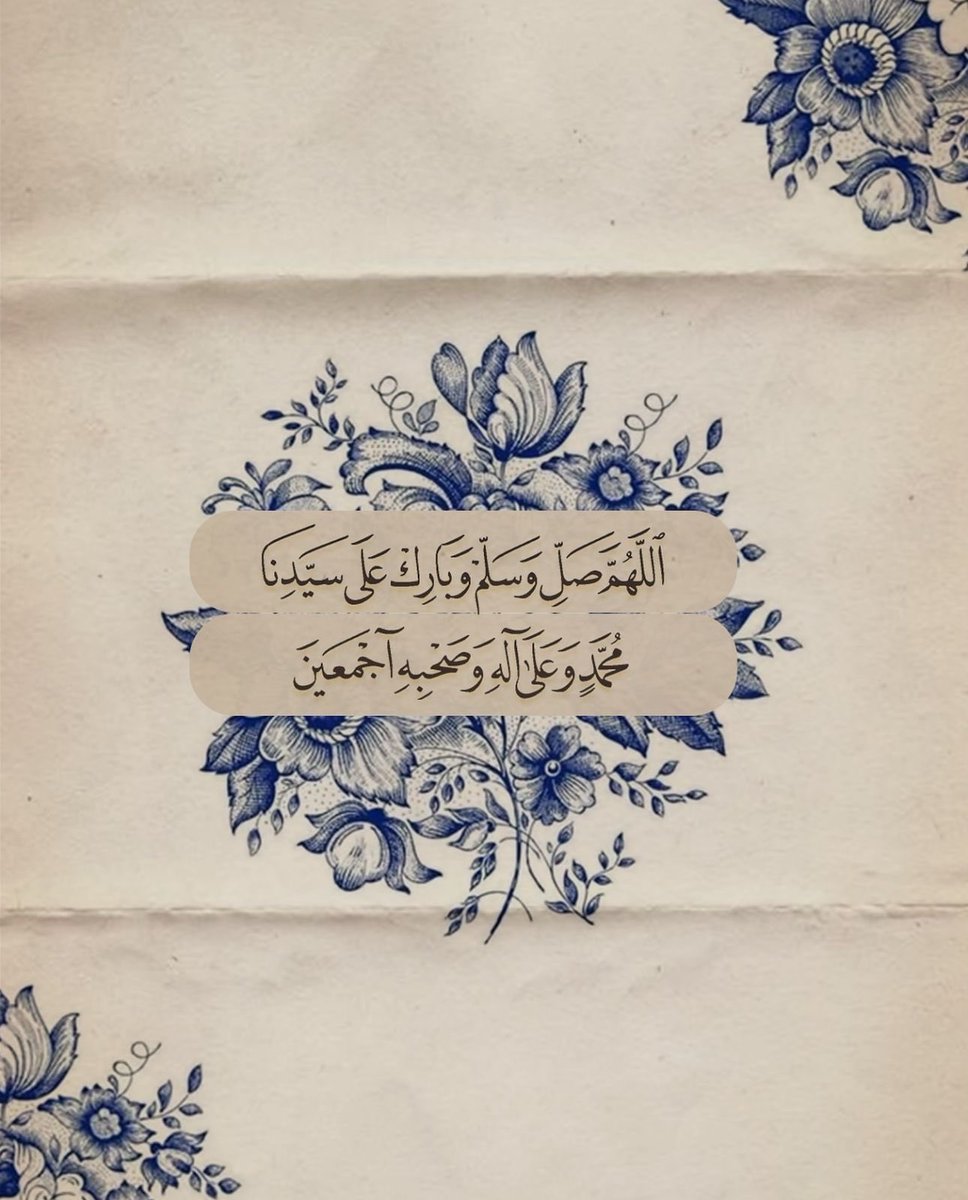 ٱللَّهُمَّ صَلِّ وَسَلِّمْ وَبَارِكْ عَلَى سَيِّدِنَا
مُحَمَّدٍ وَعَلَىٰ آلِهِ وَصَحْبِهِ آجْمَعِينَ